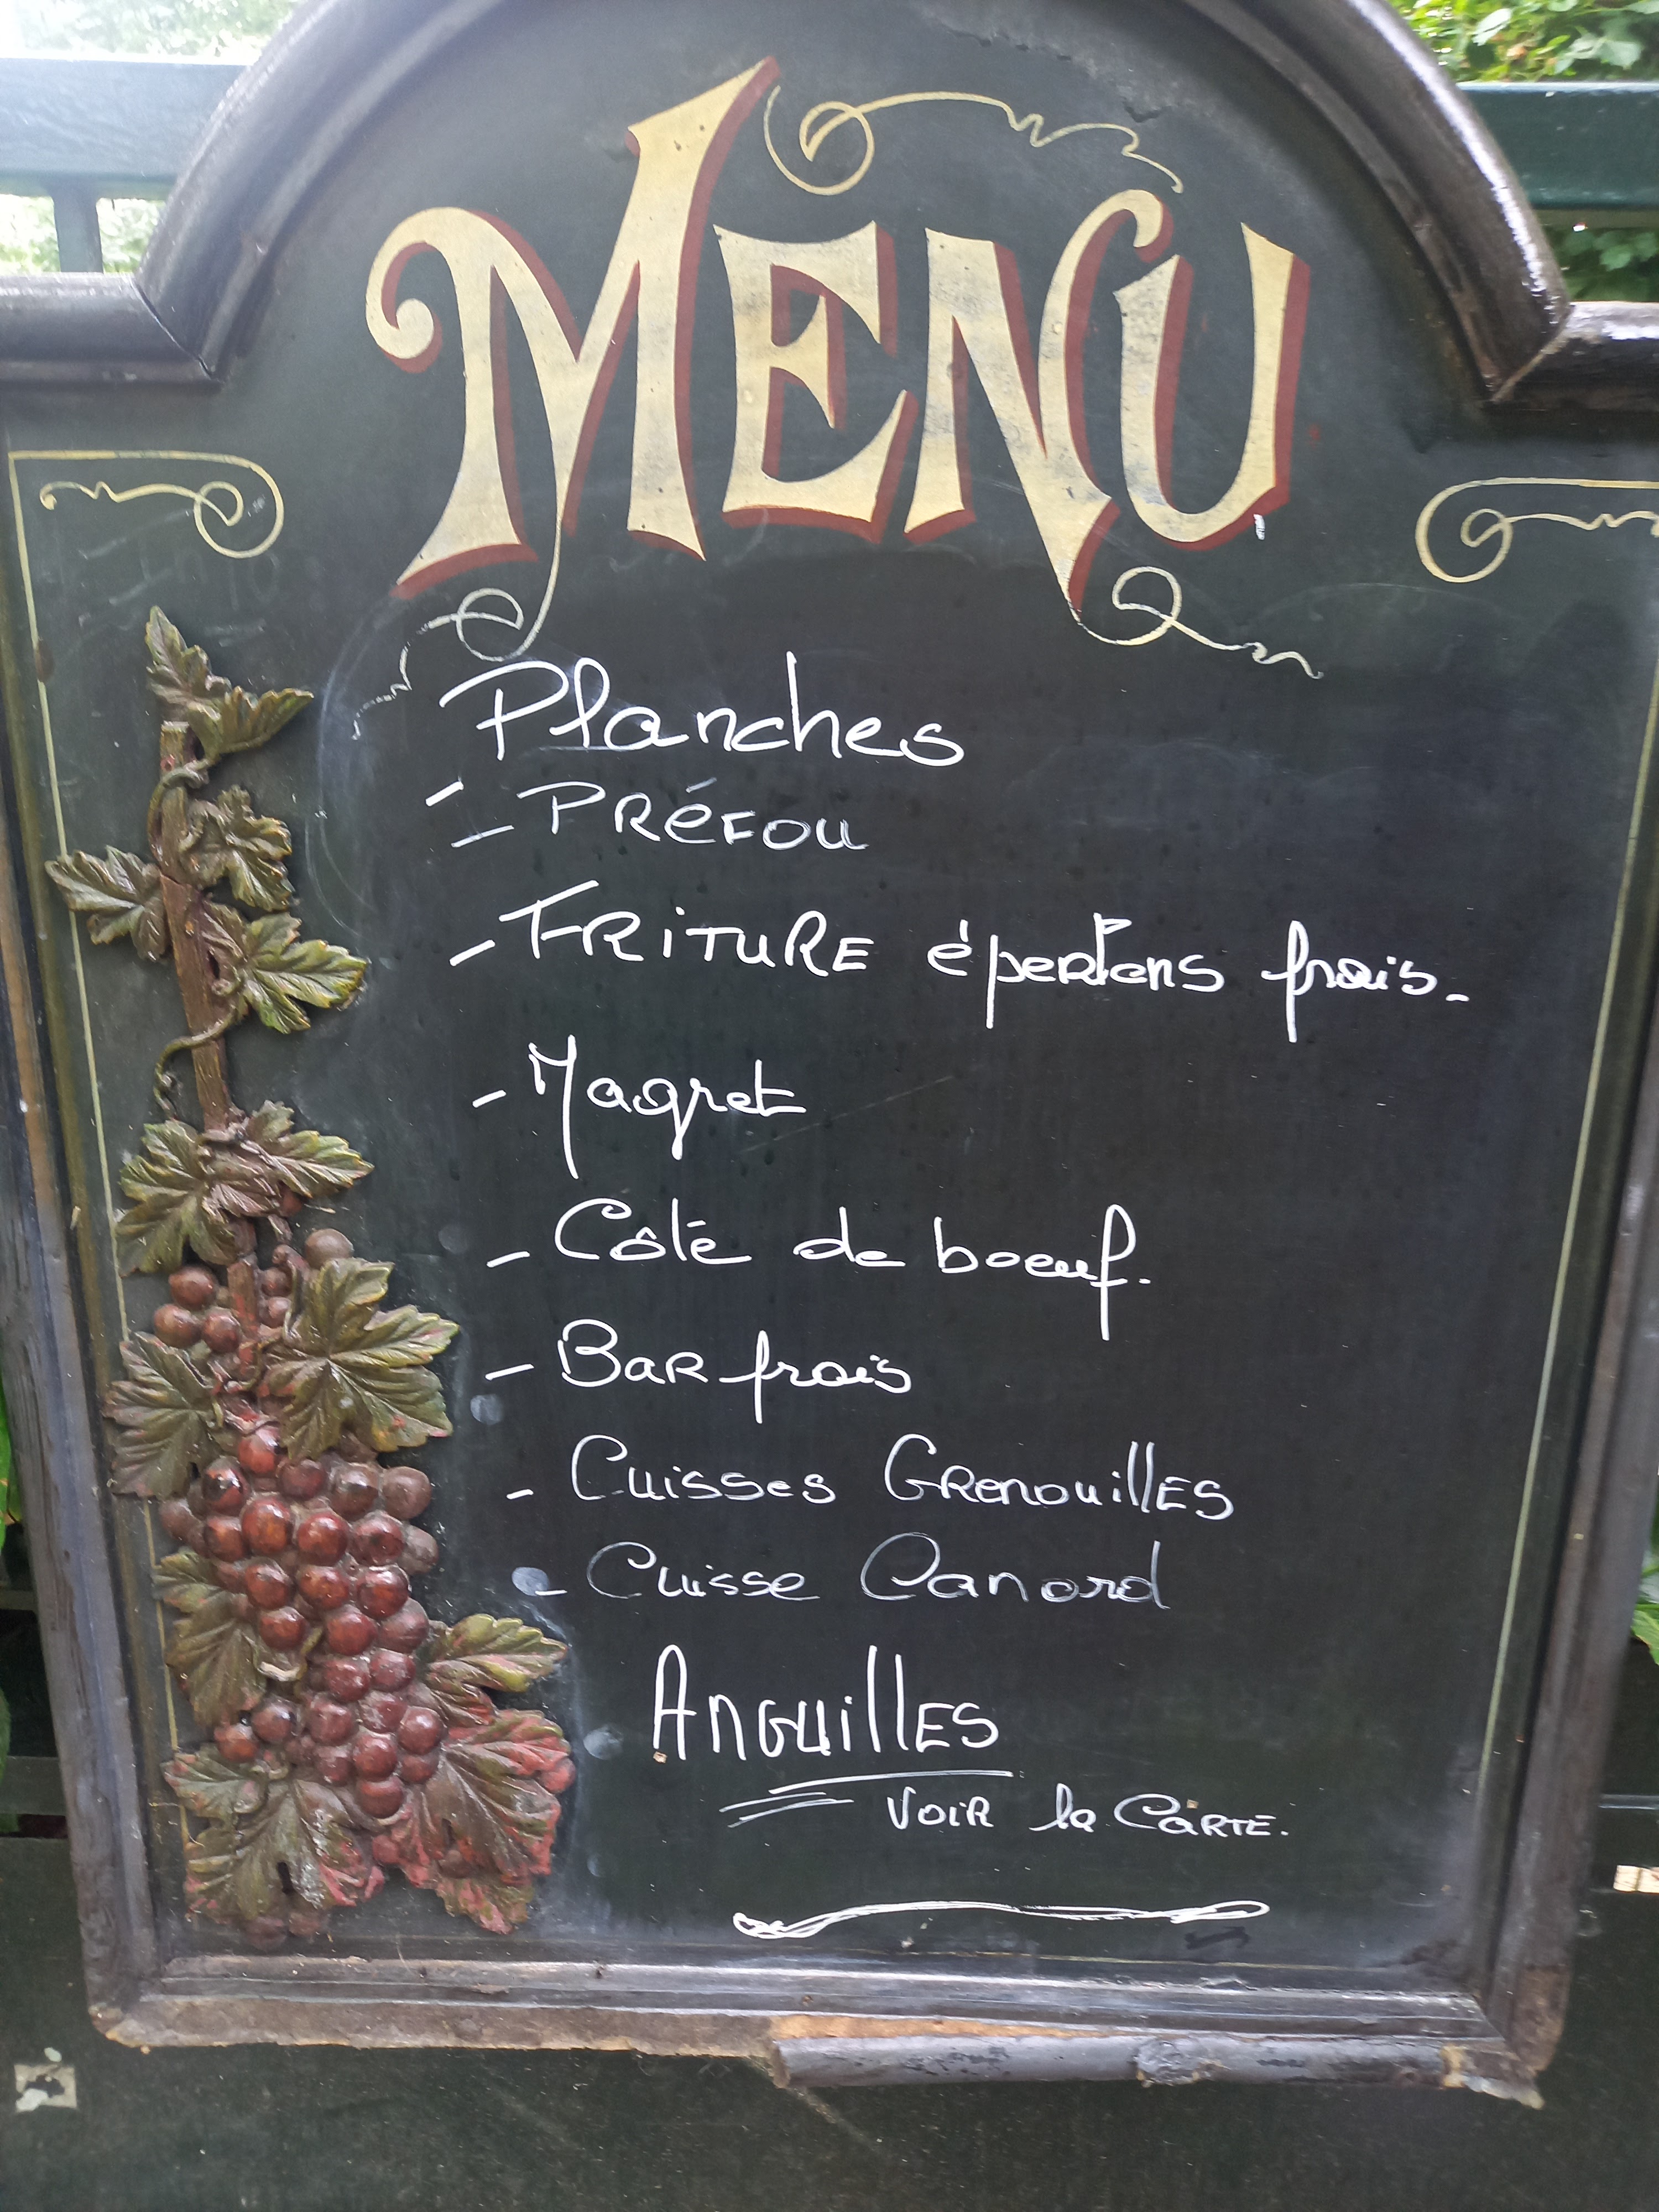 MENU
Planches
- PRÉFOU
- FRITURE éperlans frais.
- Magret
- Côte de boeuf.
- BAR frais
- Cuisses GRenouillES
- Cuisse Canard
AnGuillES
VOIR la CARTE.